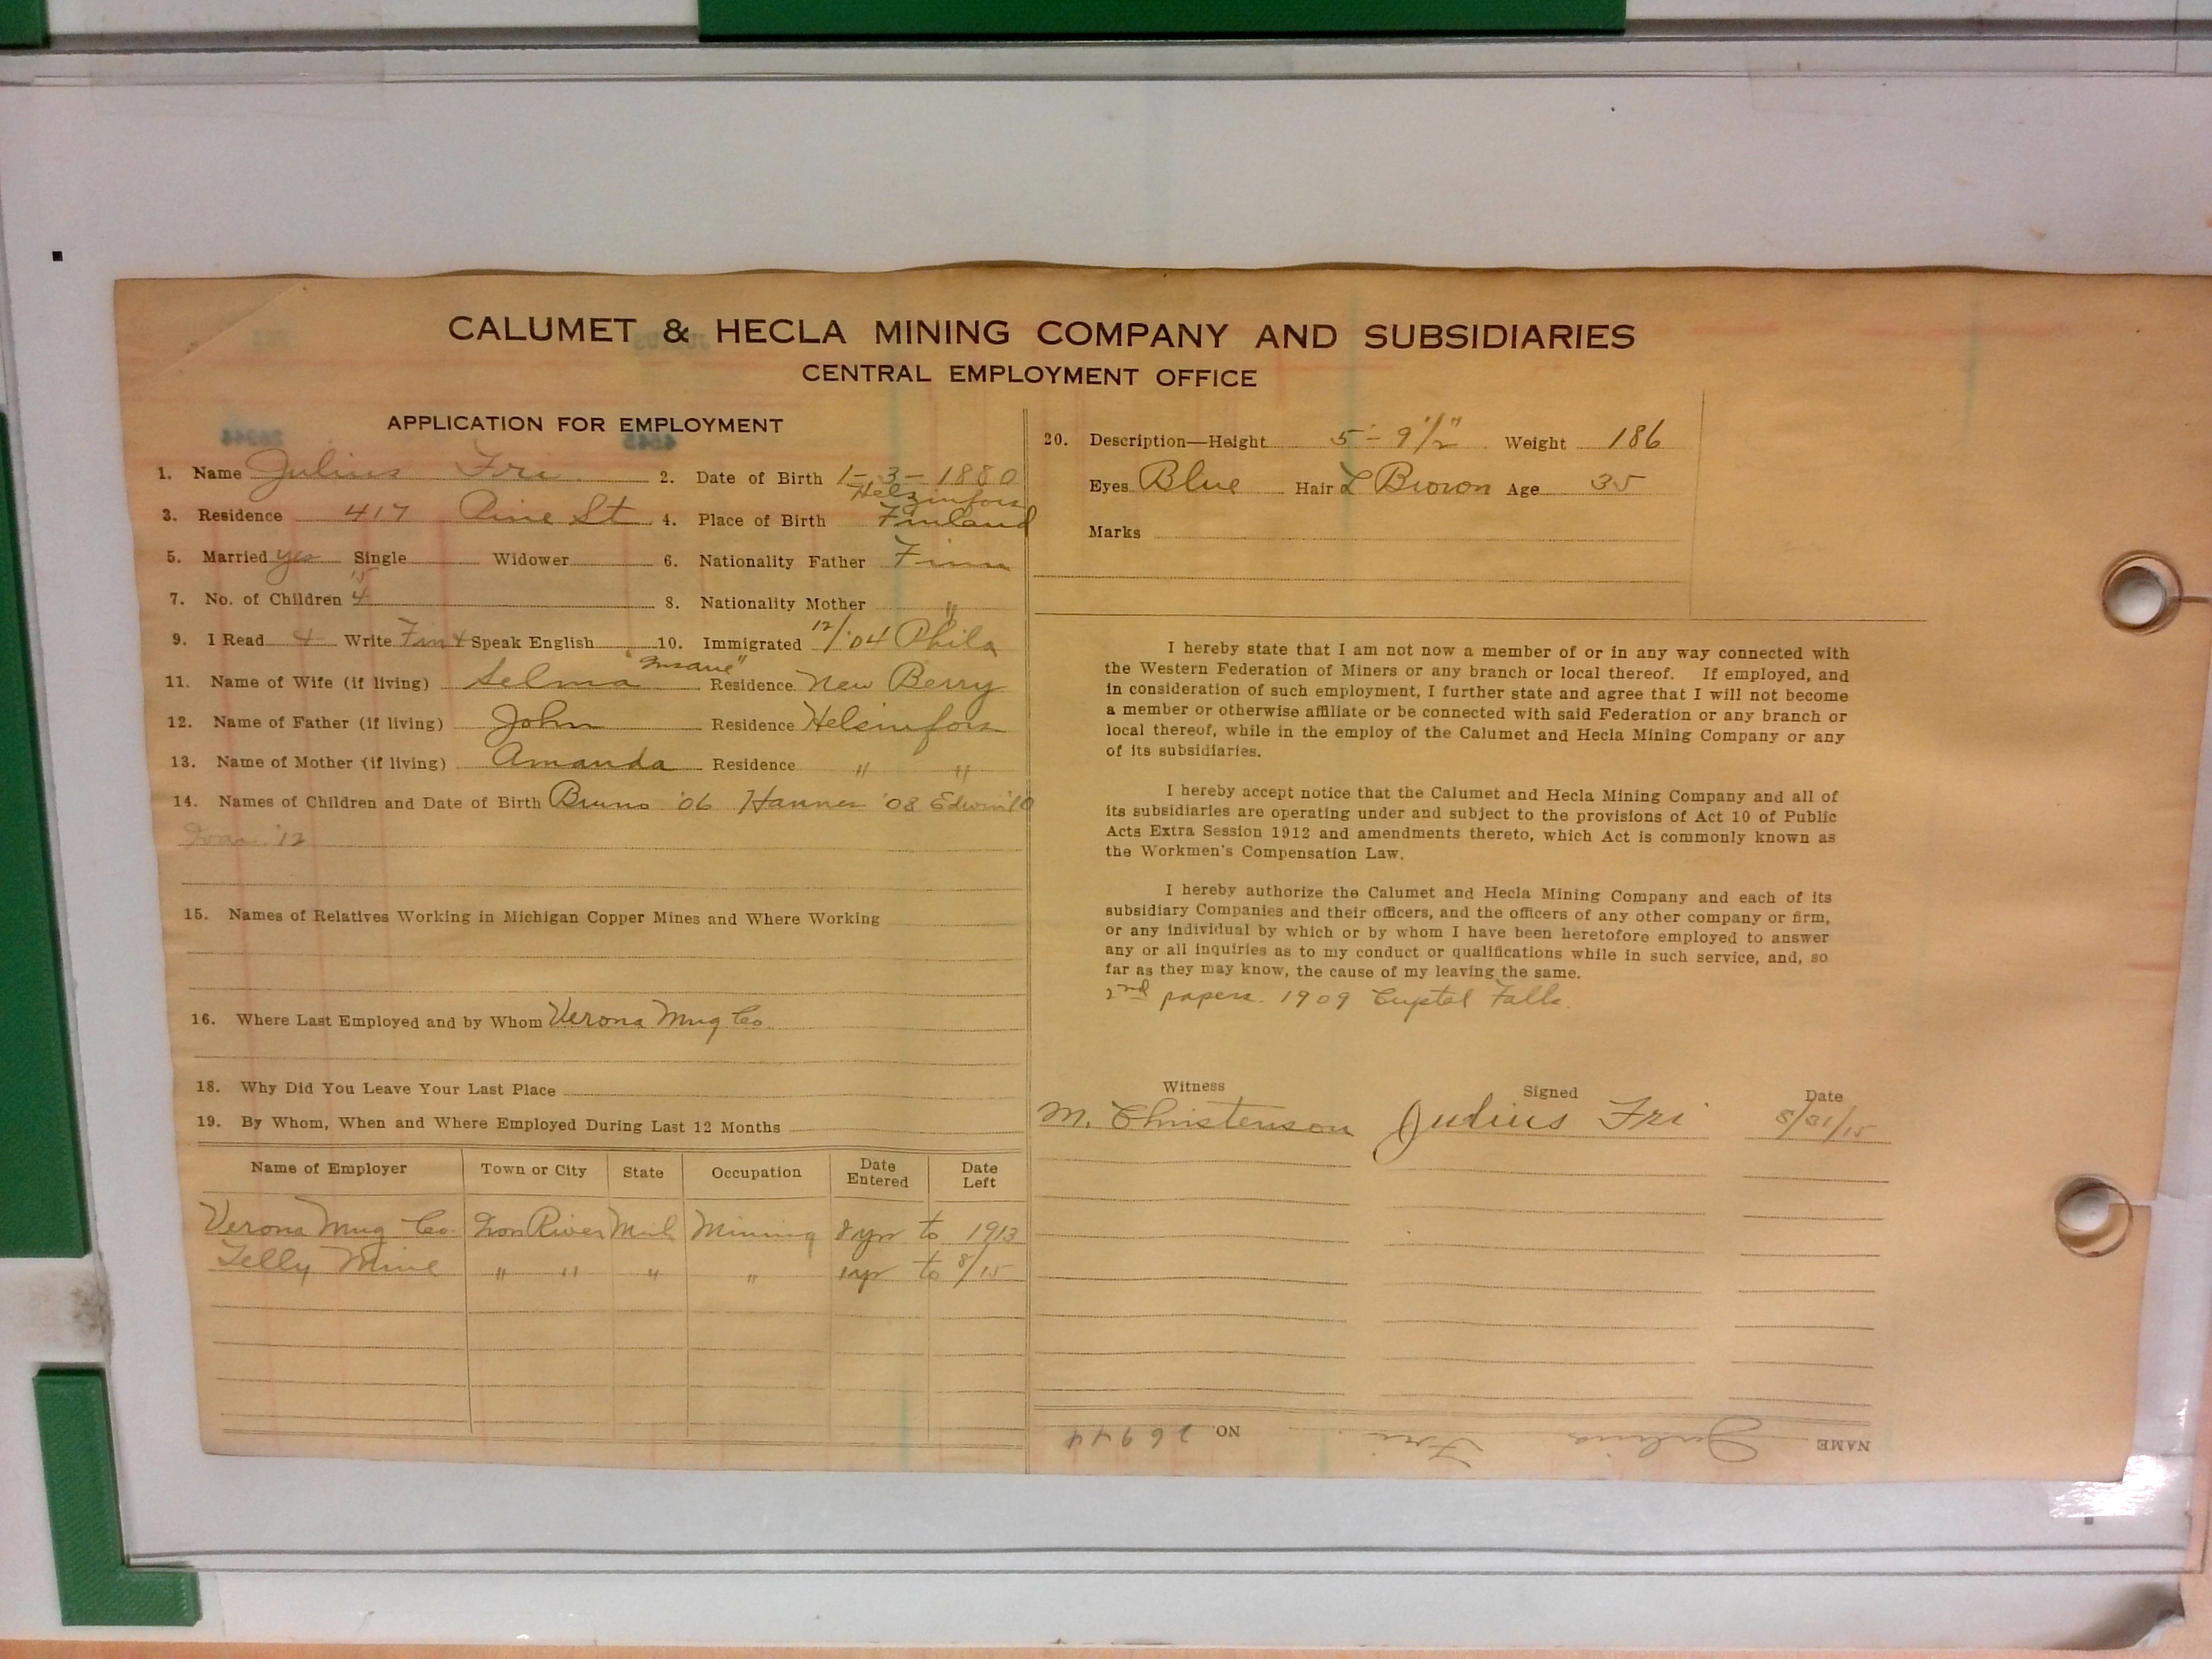 CALUMET & HECLA MINING COMPANY AND SUBSIDIARIES
CENTRAL EMPLOYMENT OFFICE
APPLICATION FOR EMPLOYMENT
1. Name Julius Fri 2. Date of Birth 1-3-1880
Helzinfors
3. Residence 417 Pine St 4. Place of Birth Finland
5. Married yes Single Widower 6. Nationality Father Finn
7. No. of Children 4 8. Nationality Mother "
9. I Read + Write Finn + Speak English 10. Immigrated 12/'04 Phila
"Insane"
11. Name of Wife (if living) Selma Residence New Berry
12. Name of Father (if living) John Residence Helsinfors
13. Name of Mother (if living) Amanda Residence " "
14. Names of Children and Date of Birth Bruno '06 Hannes '08 Edwin '10
'12
15. Names of Relatives Working in Michigan Copper Mines and Where Working
16. Where Last Employed and by Whom Verona Mng Co.
18. Why Did You Leave Your Last Place
19. By Whom, When and Where Employed During Last 12 Months
Name of Employer Town or City State Occupation Date Entered Date Left
Verona Mng Co. Iron River Mich Mining 8 yr to 1913
Mine " " " " 1 yr to 8/15
20. Description—Height 5'-9 1/2" Weight 186
Eyes Blue Hair L Brown Age 35
Marks
I hereby state that I am not now a member of or in any way connected with
the Western Federation of Miners or any branch or local thereof. If employed, and
in consideration of such employment, I further state and agree that I will not become
a member or otherwise affiliate or be connected with said Federation or any branch or
local thereof, while in the employ of the Calumet and Hecla Mining Company or any
of its subsidiaries.
I hereby accept notice that the Calumet and Hecla Mining Company and all of
its subsidiaries are operating under and subject to the provisions of Act 10 of Public
Acts Extra Session 1912 and amendments thereto, which Act is commonly known as
the Workmen's Compensation Law.
I hereby authorize the Calumet and Hecla Mining Company and each of its
subsidiary Companies and their officers, and the officers of any other company or firm,
or any individual by which or by whom I have been heretofore employed to answer
any or all inquiries as to my conduct or qualifications while in such service, and, so
far as they may know, the cause of my leaving the same.
2nd papers. 1909 Crystal Falls.
Witness Signed Date
M. Christenson Julius Fri 8/31/15
NAME Julius Fri NO. 26944